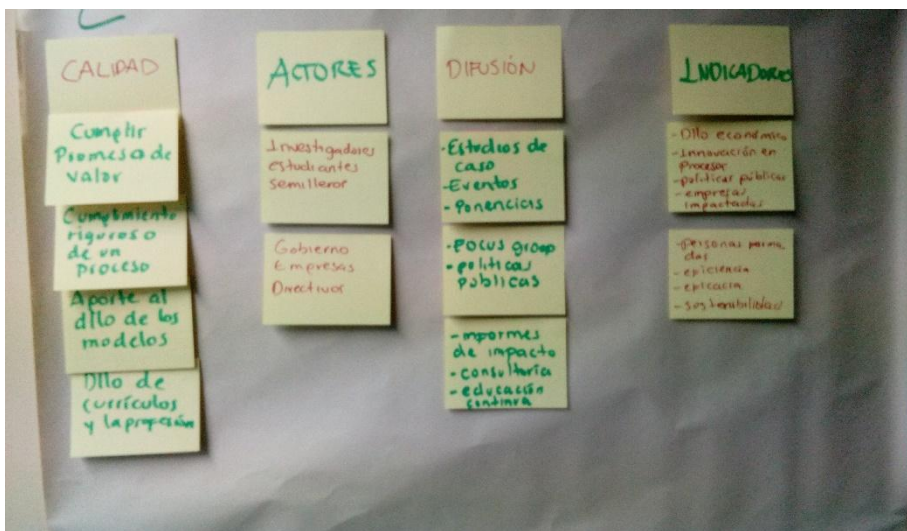 CALIDAD
Cumplir
Promesa de
valor
Cumplimiento
riguroso
de un
proceso
Aporte al
dllo de los
modelos
Dllo de
currículos
y la profesión
ACTORES
Investigadores
estudiantes
semilleros
Gobierno
Empresas
Directivos
DIFUSIÓN
-Estudios de
caso
-Eventos
-Ponencias
-focus group
-políticas
públicas
-informes
de impacto
-consultoría
-educación
continua
INDICADORES
-Dllo económico
-Innovación en
Procesos
-políticas públicas
-empresas
impactadas
-personas forma
das
-eficiencia
-eficacia
-sostenibilidad